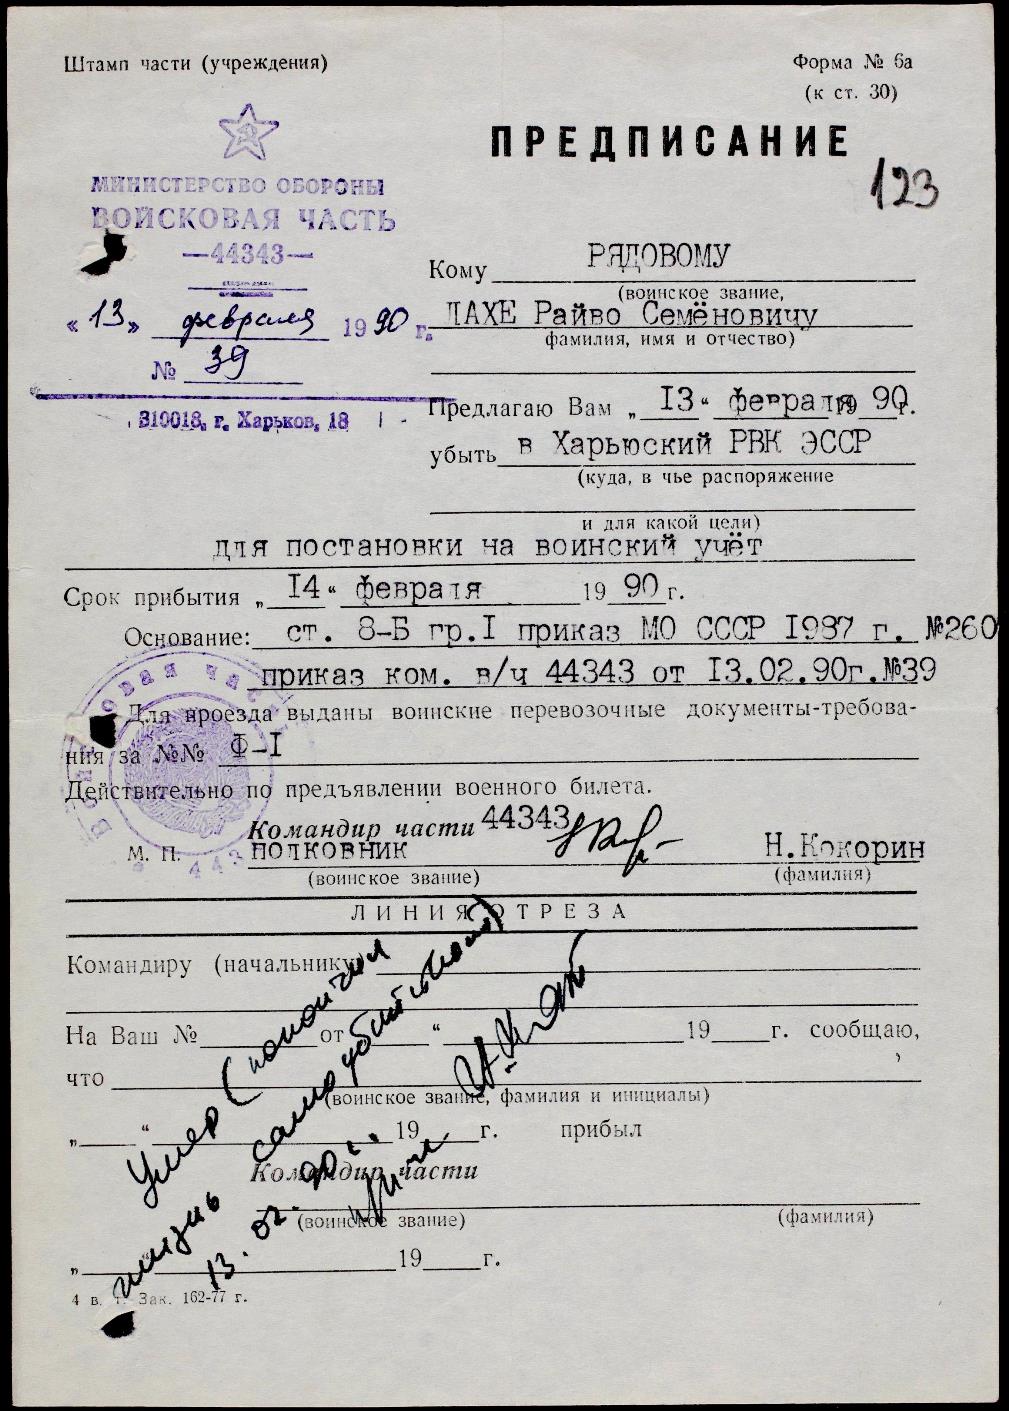 Штамп части (учреждения)
Форма № 6а
(к ст. 30)
ПРЕДПИСАНИЕ
123
МИНИСТЕРСТВО ОБОРОНЫ
ВОЙСКОВАЯ ЧАСТЬ
—44343—
«13» февраля 1990 г.
№ 39
310018, г. Харьков, 18
Кому РЯДОВОМУ
(воинское звание,
ЛАХЕ Райво Семёновичу
фамилия, имя и отчество)
Предлагаю Вам „13“ февраля 19 90 г.
убыть в Харьюский РВК ЭССР
(куда, в чье распоряжение
и для какой цели)
для постановки на воинский учёт
Срок прибытия „14“ февраля 19 90 г.
Основание: ст. 8-Б гр.I приказ МО СССР 1987 г. №260
приказ ком. в/ч 44343 от 13.02.90г.№39
Для проезда выданы воинские перевозочные документы-требова-
ния за №№ Ф-I
Действительно по предъявлении военного билета.
Командир части 44343
М. П. ПОЛКОВНИК Н.Кокорин
(воинское звание) (фамилия)
Войсковая часть
443
ЛИНИЯ ОТРЕЗА
Командиру (начальнику)
На Ваш № от „ “ 19 г. сообщаю,
что
(воинское звание, фамилия и инициалы)
„ “ 19 г. прибыл
Командир части
(воинское звание) (фамилия)
„ “ 19 г.
4 в. т. Зак. 162-77 г.
Умер (покончил
жизнь самоубийством)
13.02.90 г.